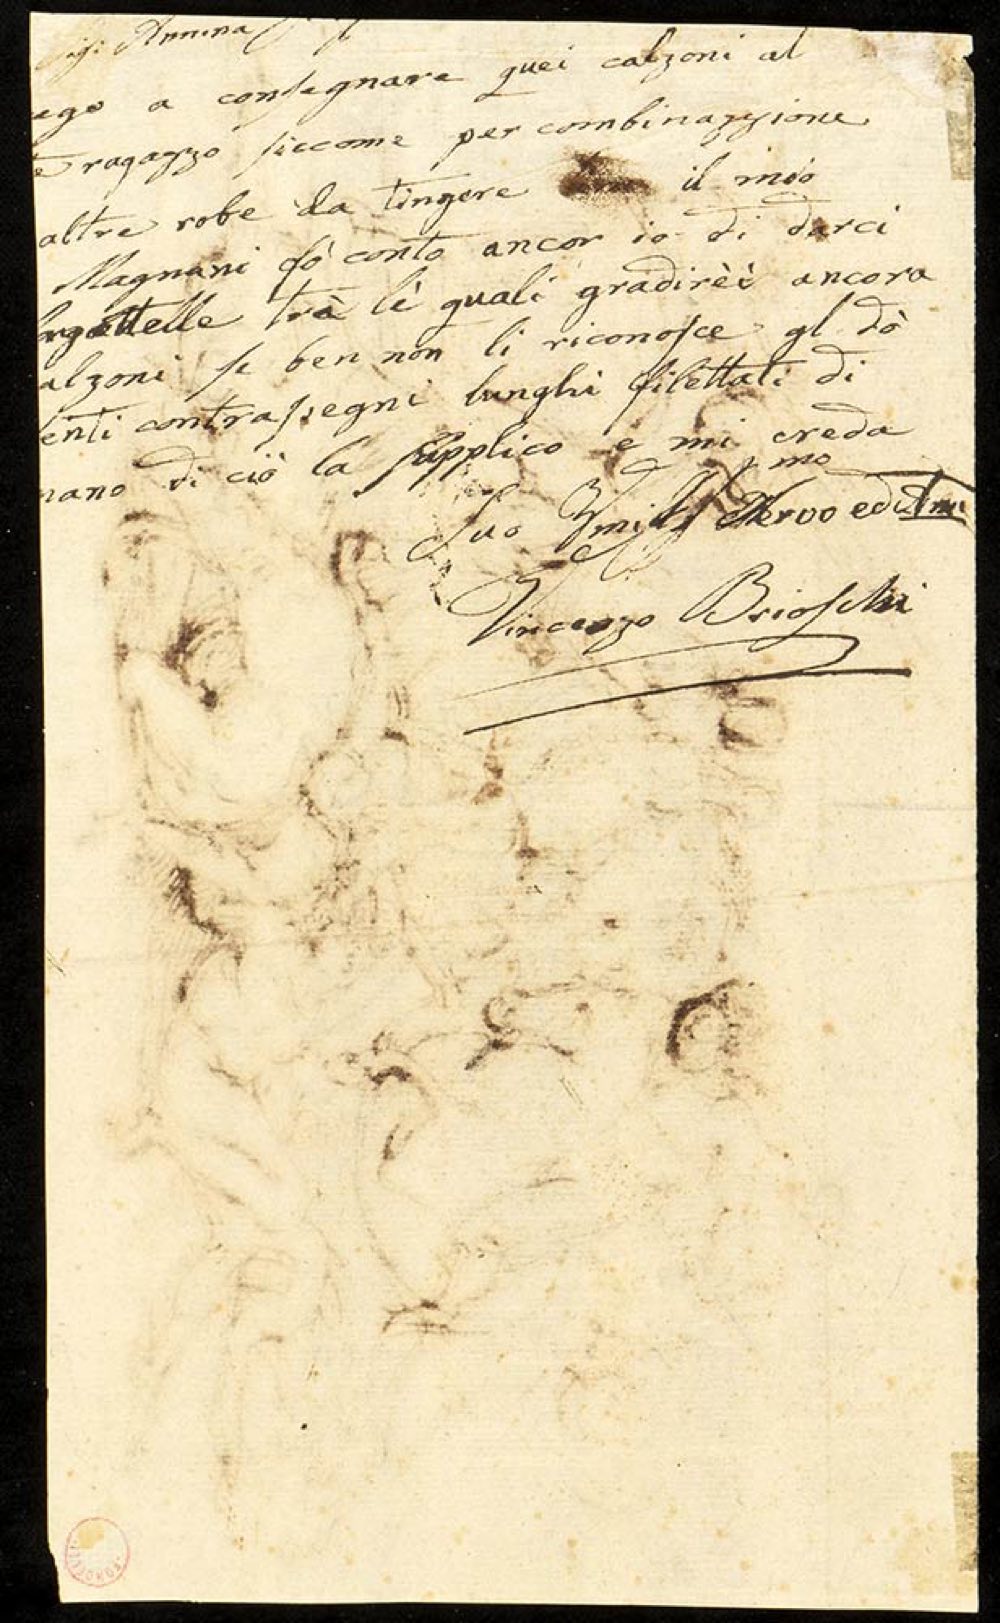 Sig: Annina
ego a consegnare quei calzoni al
e ragazzo siccome per combinazzione
altre robe da tingere il mio
Magnani fò conto ancor io di darci
argattelle trà lè quali gradirèi ancora
alzoni se ben non li riconosce gl dò
enti contrasegni lunghi filettati di
mano di ciò la supplico e mi creda
Suo Servo ed
Vincenzo Brioschi